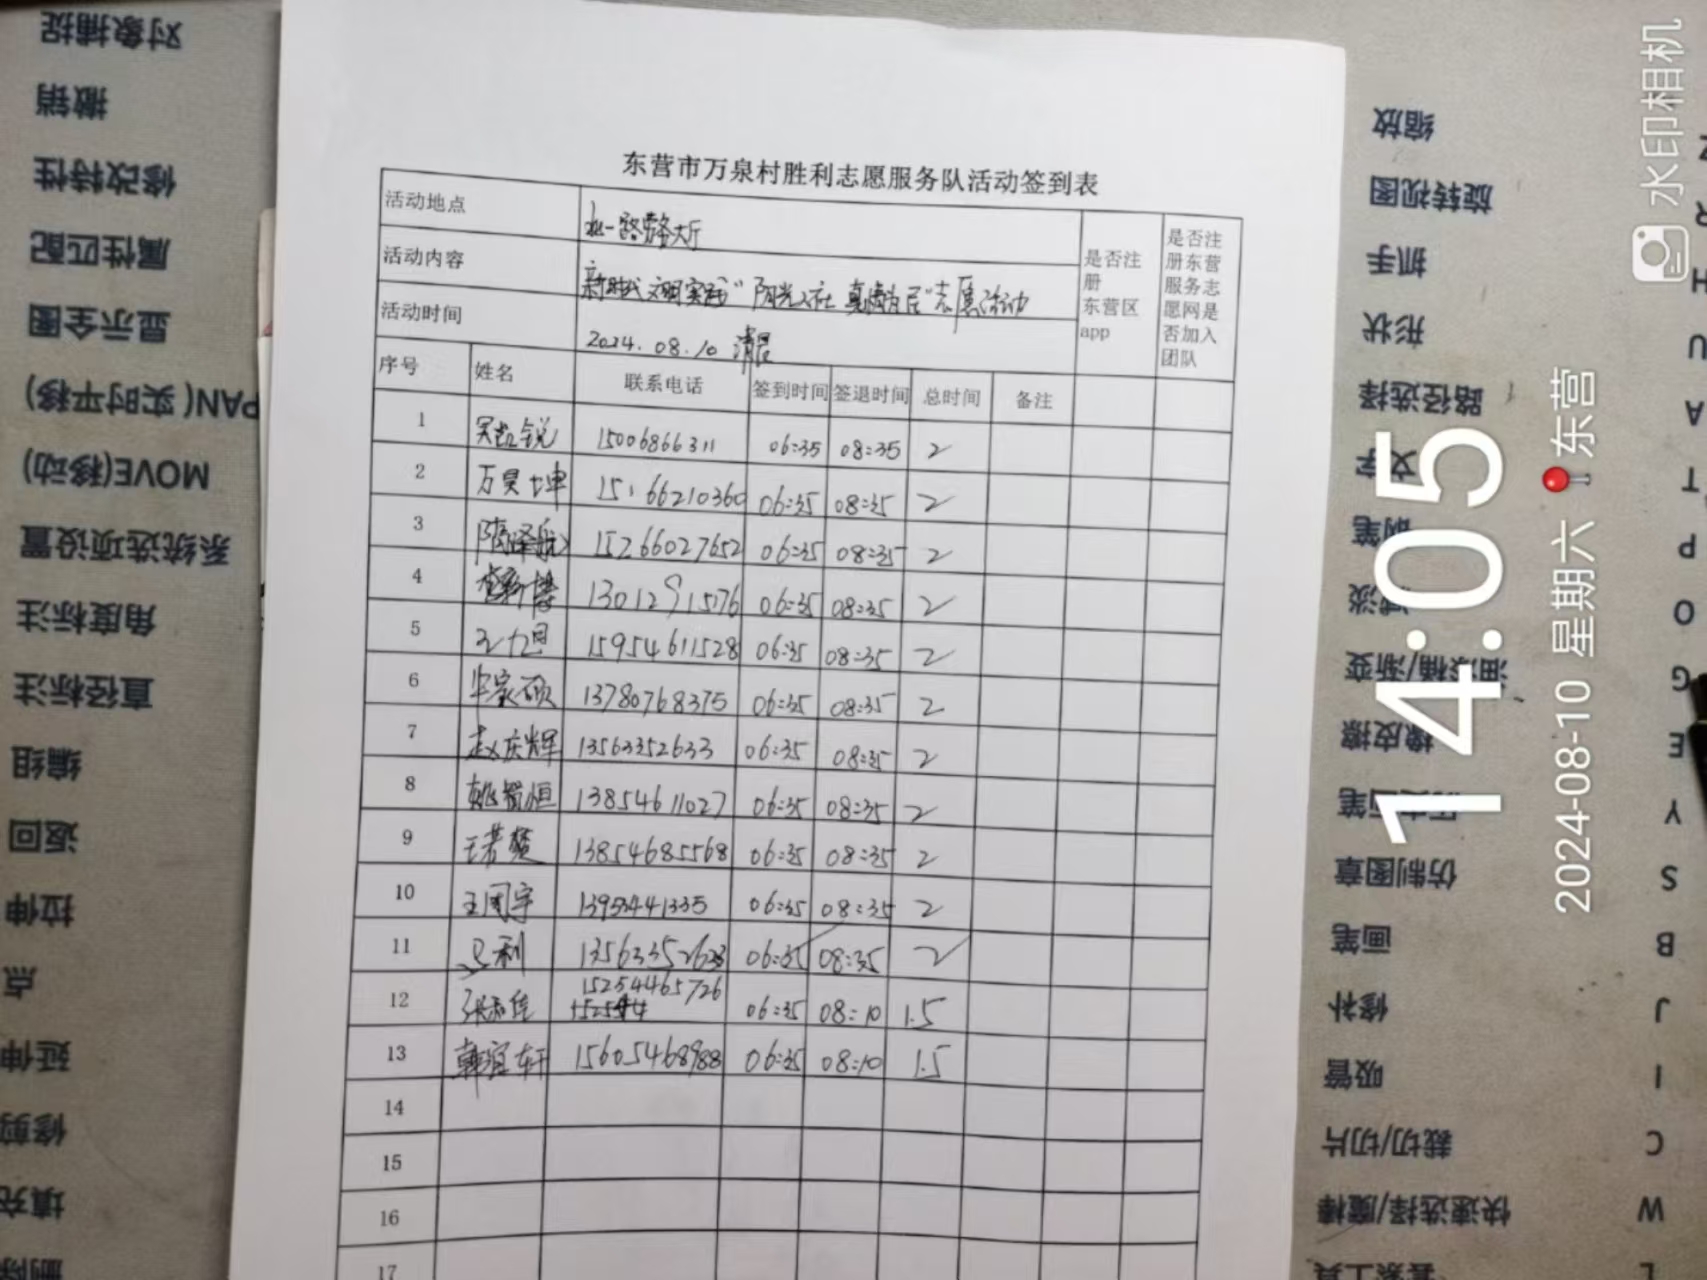 东营市万泉村胜利志愿服务队活动签到表
活动地点 路劳务大厅
活动内容 新时代文明实践"阳光入社 真情为民"志愿活动
活动时间 2024.08.10 清晨
是否注册东营区app
是否注册东营服务志愿网是否加入团队
序号 姓名 联系电话 签到时间 签退时间 总时间 备注
1 吴凯锐 15006866311 06:35 08:35 2
2 万昊坤 15166210360 06:35 08:35 2
3 隋泽航 15266027652 06:35 08:35 2
4 13012915076 06:35 08:35 2
5 15954611528 06:35 08:35 2
6 毕家硕 13780768375 06:35 08:35 2
7 赵庆辉 13563352633 06:35 08:35 2
8 恒 13854611027 06:35 08:35 2
9 王若楚 13854685568 06:35 08:35 2
10 王周宇 06:35 08:35 2
11 利 13563352633 06:35 08:35 2
12 15254465726 06:35 08:10 1.5
13 韩宜轩 15605468988 06:35 08:10 1.5
14
15
16
17
对象捕捉
撤销
修改特性
属性匹配
显示全图
PAN(实时平移)
MOVE(移动)
系统选项设置
角度标注
直径标注
编组
返回
拉伸
点
延伸
修剪
填充
删除
缩放 Z
旋转视图 R
抓手 H
形状 U
路径选择 A
文字 T
钢笔 P
减淡 O
油漆桶/渐变 G
橡皮擦 E
画笔 Y
仿制图章 S
画笔 B
修补 J
吸管 I
裁切/切片 C
快速选择/魔棒 W
套索工具 L
水印相机
14:05
2024-08-10 星期六 东营